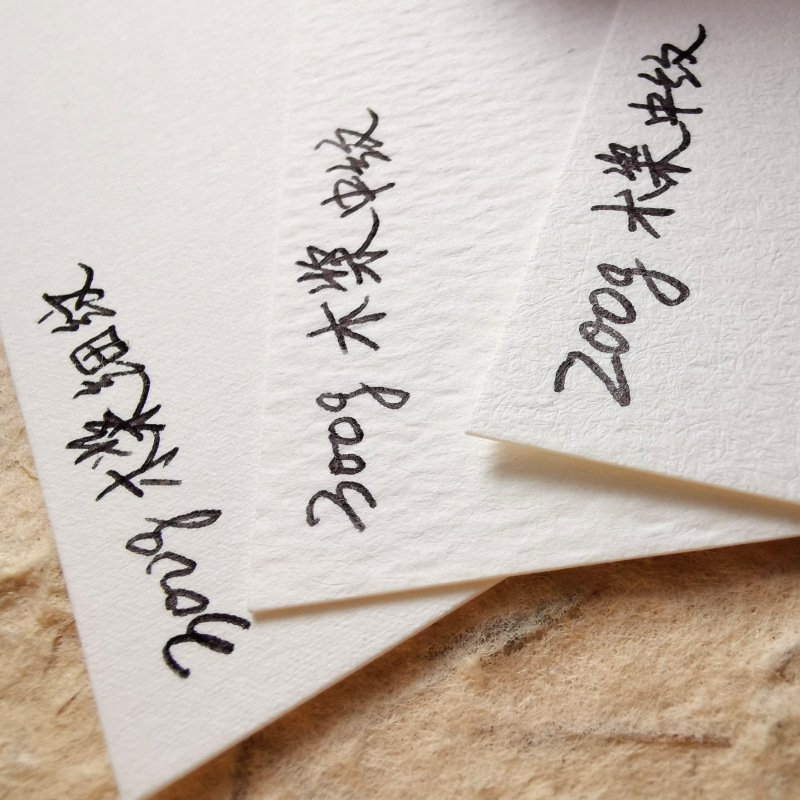 300g 木浆细纹
300g 木浆中纹
200g 木浆中纹